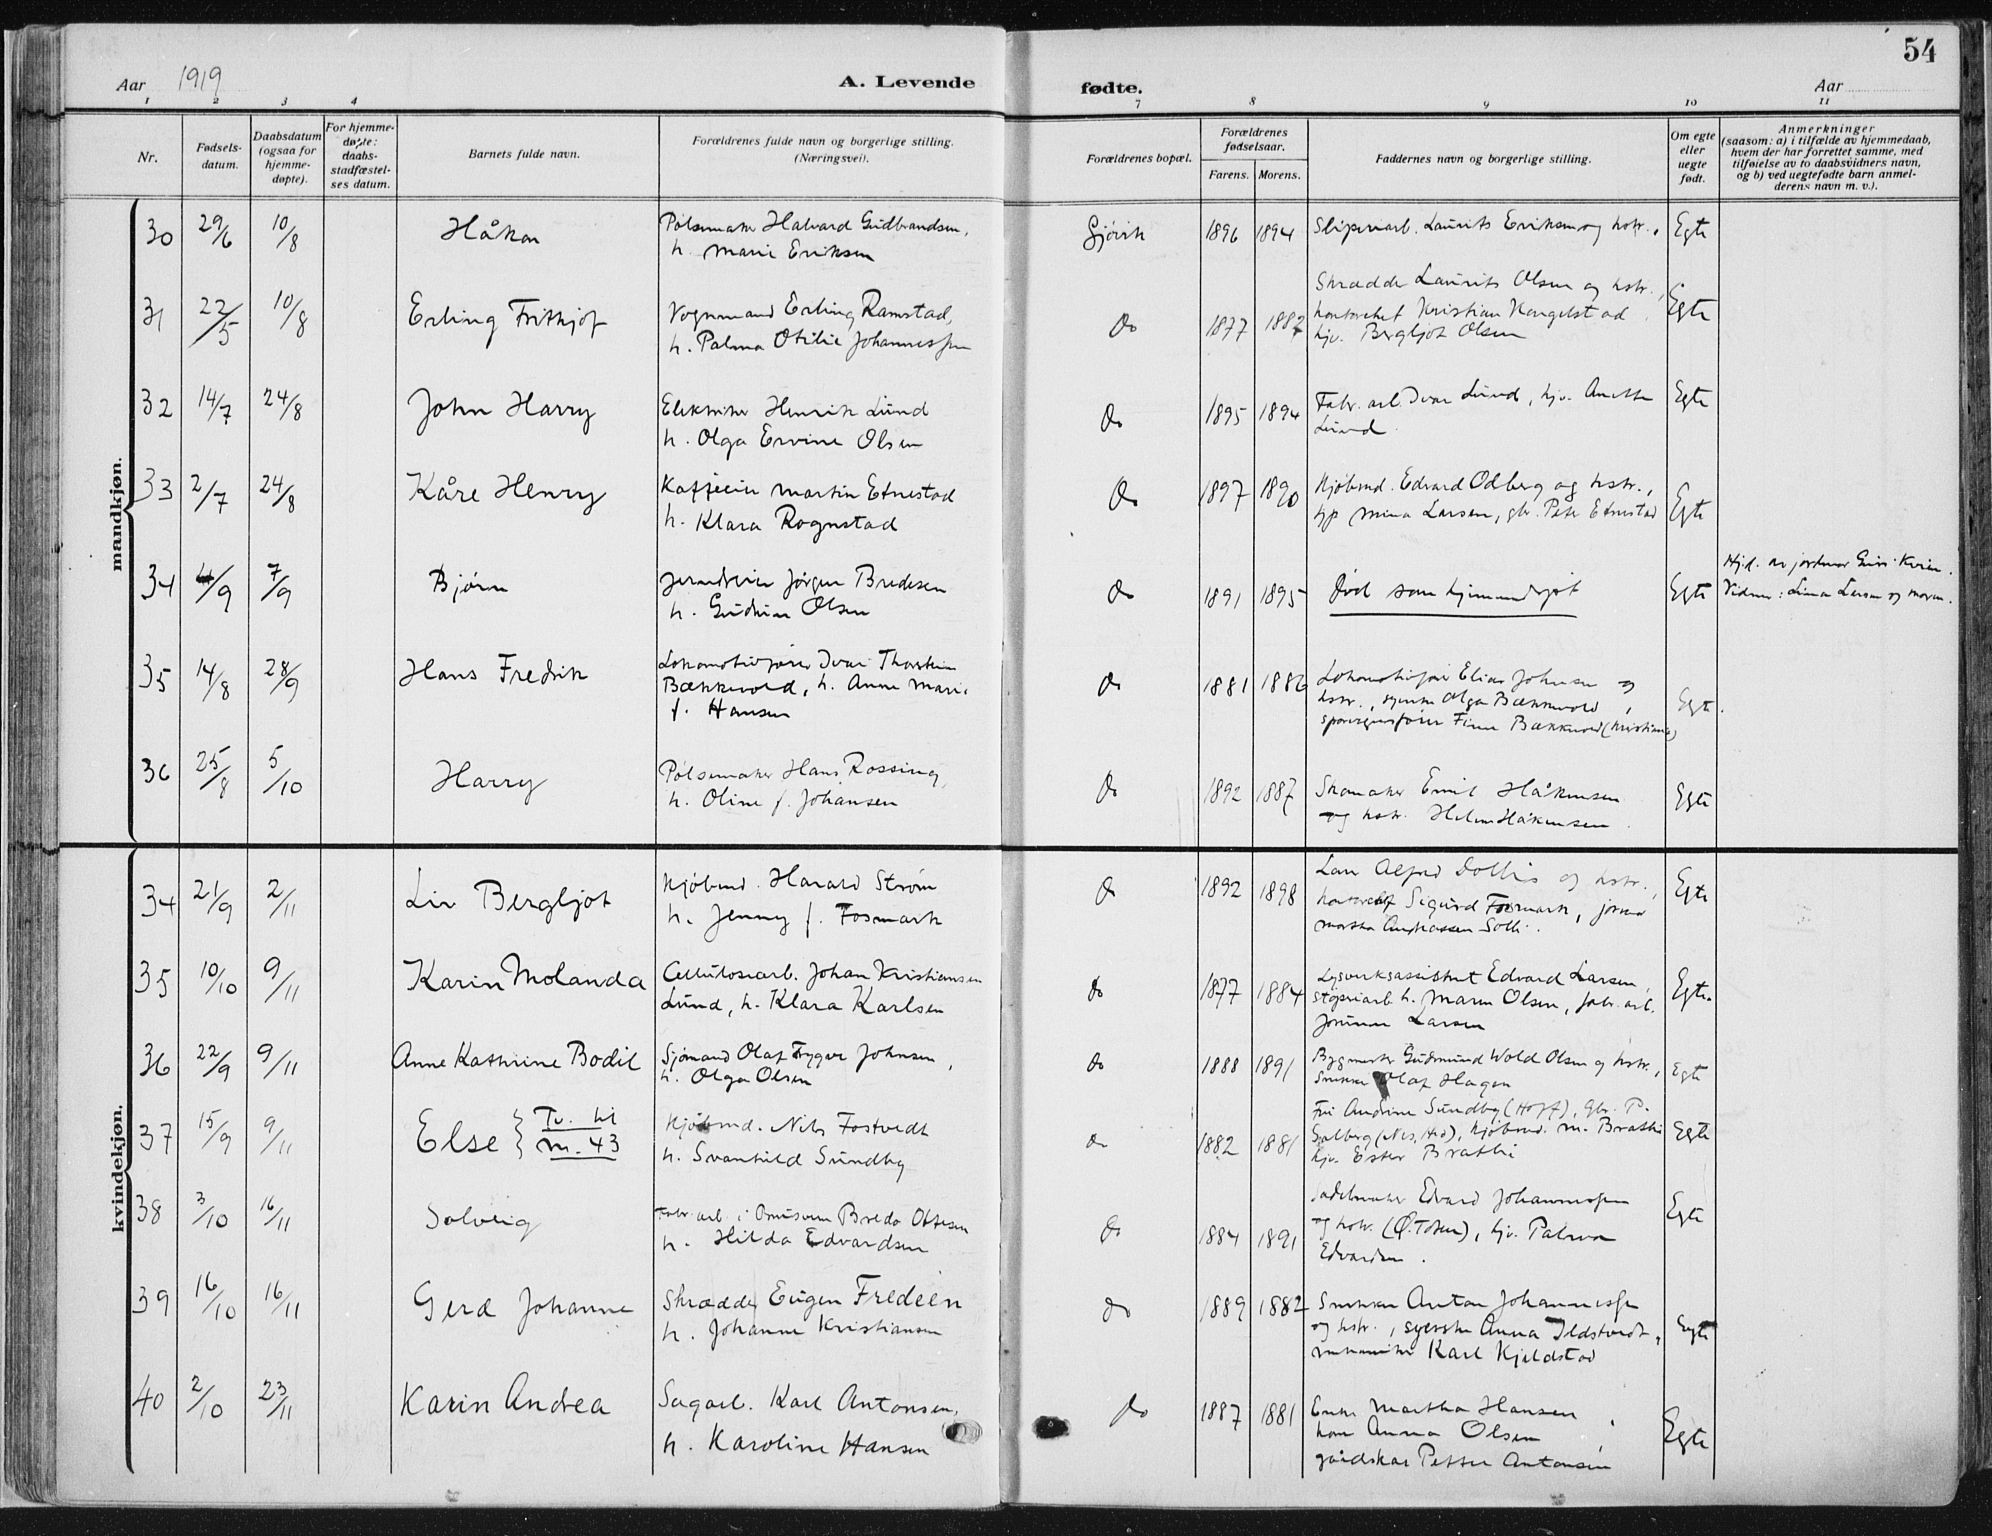 54
Aar 1919 A. Levende fødte. Aar
1 2 3 4 7 8 9 10 11
Nr.
Fødsels-
datum.
Daabsdatum
(ogsaa for
hjemme-
døpte).
For hjemme-
døpte:
daabs-
stadfæstel-
ses datum.
Barnets fulde navn.
Forældrenes fulde navn og borgerlige stilling.
(Næringsvei).
Forældrenes bopæl.
Forældrenes
fødselsaar.
Farens. Morens.
Faddernes navn og borgerlige stilling.
Om egte
eller
uegte
født.
Anmerkninger
(saasom: a) i tilfælde av hjemmedaab,
hvem der har forrettet samme, med
tilføielse av to daabsvidners navn,
og b) ved uegtefødte barn anmel-
derens navn m. v.).
mandkjøn.
30 29/6 10/8 Håkon
Pølsemaker Halvard Gudbrandsen,
h. Marie Eriksen
Gjøvik 1896 1894
Sliperiarb. Laurits Eriksen og hstr.,
Egte
31 22/5 10/8 Erling Frithjof
Vognmand Erling Ramstad,
h. Palma Otilie Johannessen
do 1877 1882
Skrædder Laurits Olsen og hstr.,
Kristian
hjv. Bergljot Olsen
Egte
32 14/7 24/8 John Harry
Elektriker Henrik Lund
h. Olga Ervine Olsen
do 1895 1894
Fabr. arb. Ivar Lund, hjv. Anette
Lund
Egte
33 2/7 24/8 Kåre Henry
Martin Etnestad
h. Klara Rognstad
do 1897 1890
Kjøbmd. Edvard Odberg og hstr.,
Mina Larsen, gbr. Peter Etnestad
Egte
34 4/9 7/9 Bjørn
Jørgen Bredesen
h. Gudrun Olsen
do 1891 1895
Død som hjemmedøpt
Egte
Hj.d. av jordmor Guri Kvien.
Vidner: Lina Larsen og moren.
35 14/8 28/9 Hans Fredrik
Lokomotivfører Ivar Thorstein
Bækkevold, h. Anne Marie
f. Hansen
do 1881 1886
Lokomotivfører Elias Johnsen og
hstr., Olga Bækkevold,
Finn Bækkevold (Kristiania)
Egte.
36 25/8 5/10 Harry
Pølsemaker Hans Rossing,
h. Oline f. Johansen
do 1892 1887
Skomaker Emil Håkensen
og hstr. Helene Håkensen.
Egte
kvindekjøn.
34 21/9 2/11 Liv Bergljot
Kjøbmd. Harald Strøm
h. Jenny f. Fosmark
do 1892 1898
Alfred Dollis og hstr.,
Sigurd Fosmark,
Martha Andreassen Solli.
Egte
35 10/10 9/11 Karin Molanda
Cellulosearb. Johan Kristiansen
Lund, h. Klara Karlsen
do 1877 1884
Lysverksassistent Edvard Larsen,
h. Maren Olsen, fabr. arb.
Larsen
Egte.
36 22/9 9/11 Anne Kathrine Bodil
Sjømand Olaf Trygve Johnsen,
h. Olga Olsen
do 1888 1891
Bygmester Gudmund Wold Olsen og hstr.,
Snekker Olaf Hagen
Egte
37 15/9 9/11 Else } Tv. til
m. 43
Kjøbmd. Nils Fostvedt
h. Svanhild Sundby
do 1882 1881
Andrine Sundby (Hoff), Gbr. P.
Kjøbmd. M. Brathi
hjv. Ester Brathi
Egte
38 3/10 16/11 Solveig
Fabr. arb. i Bredo Ottesen
h. Hilda Edvardsen
do 1884 1891
Sadelmaker Edvard Johannessen
og hstr. (Ø. Toten), hjv. Palma
Edvardsen.
Egte
39 16/10 16/11 Gerd Johanne
Skrædder Eugen Fredeen
h. Johanne Kristiansen
do 1889 1882
Snekker Anton Johannessen
og hstr., syerske Anna Ildstvedt,
Karl Kjeldstad
Egte
40 2/10 23/11 Karin Andrea
Sagarb. Karl Antonsen,
h. Karoline Hansen
do 1887 1881
Enke Martha Hansen,
kone Anna Olsen,
gårdskar Petter Antonsen
Egte